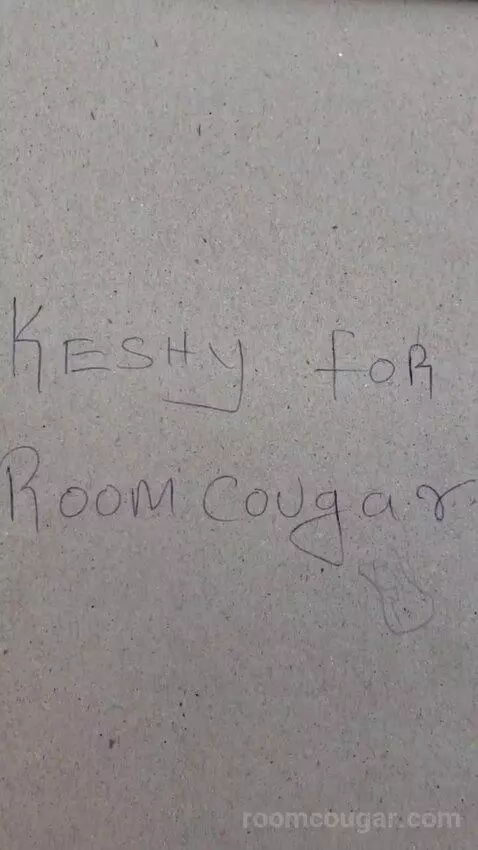 KESHY FOR
ROOM COUgar
roomcougar.com